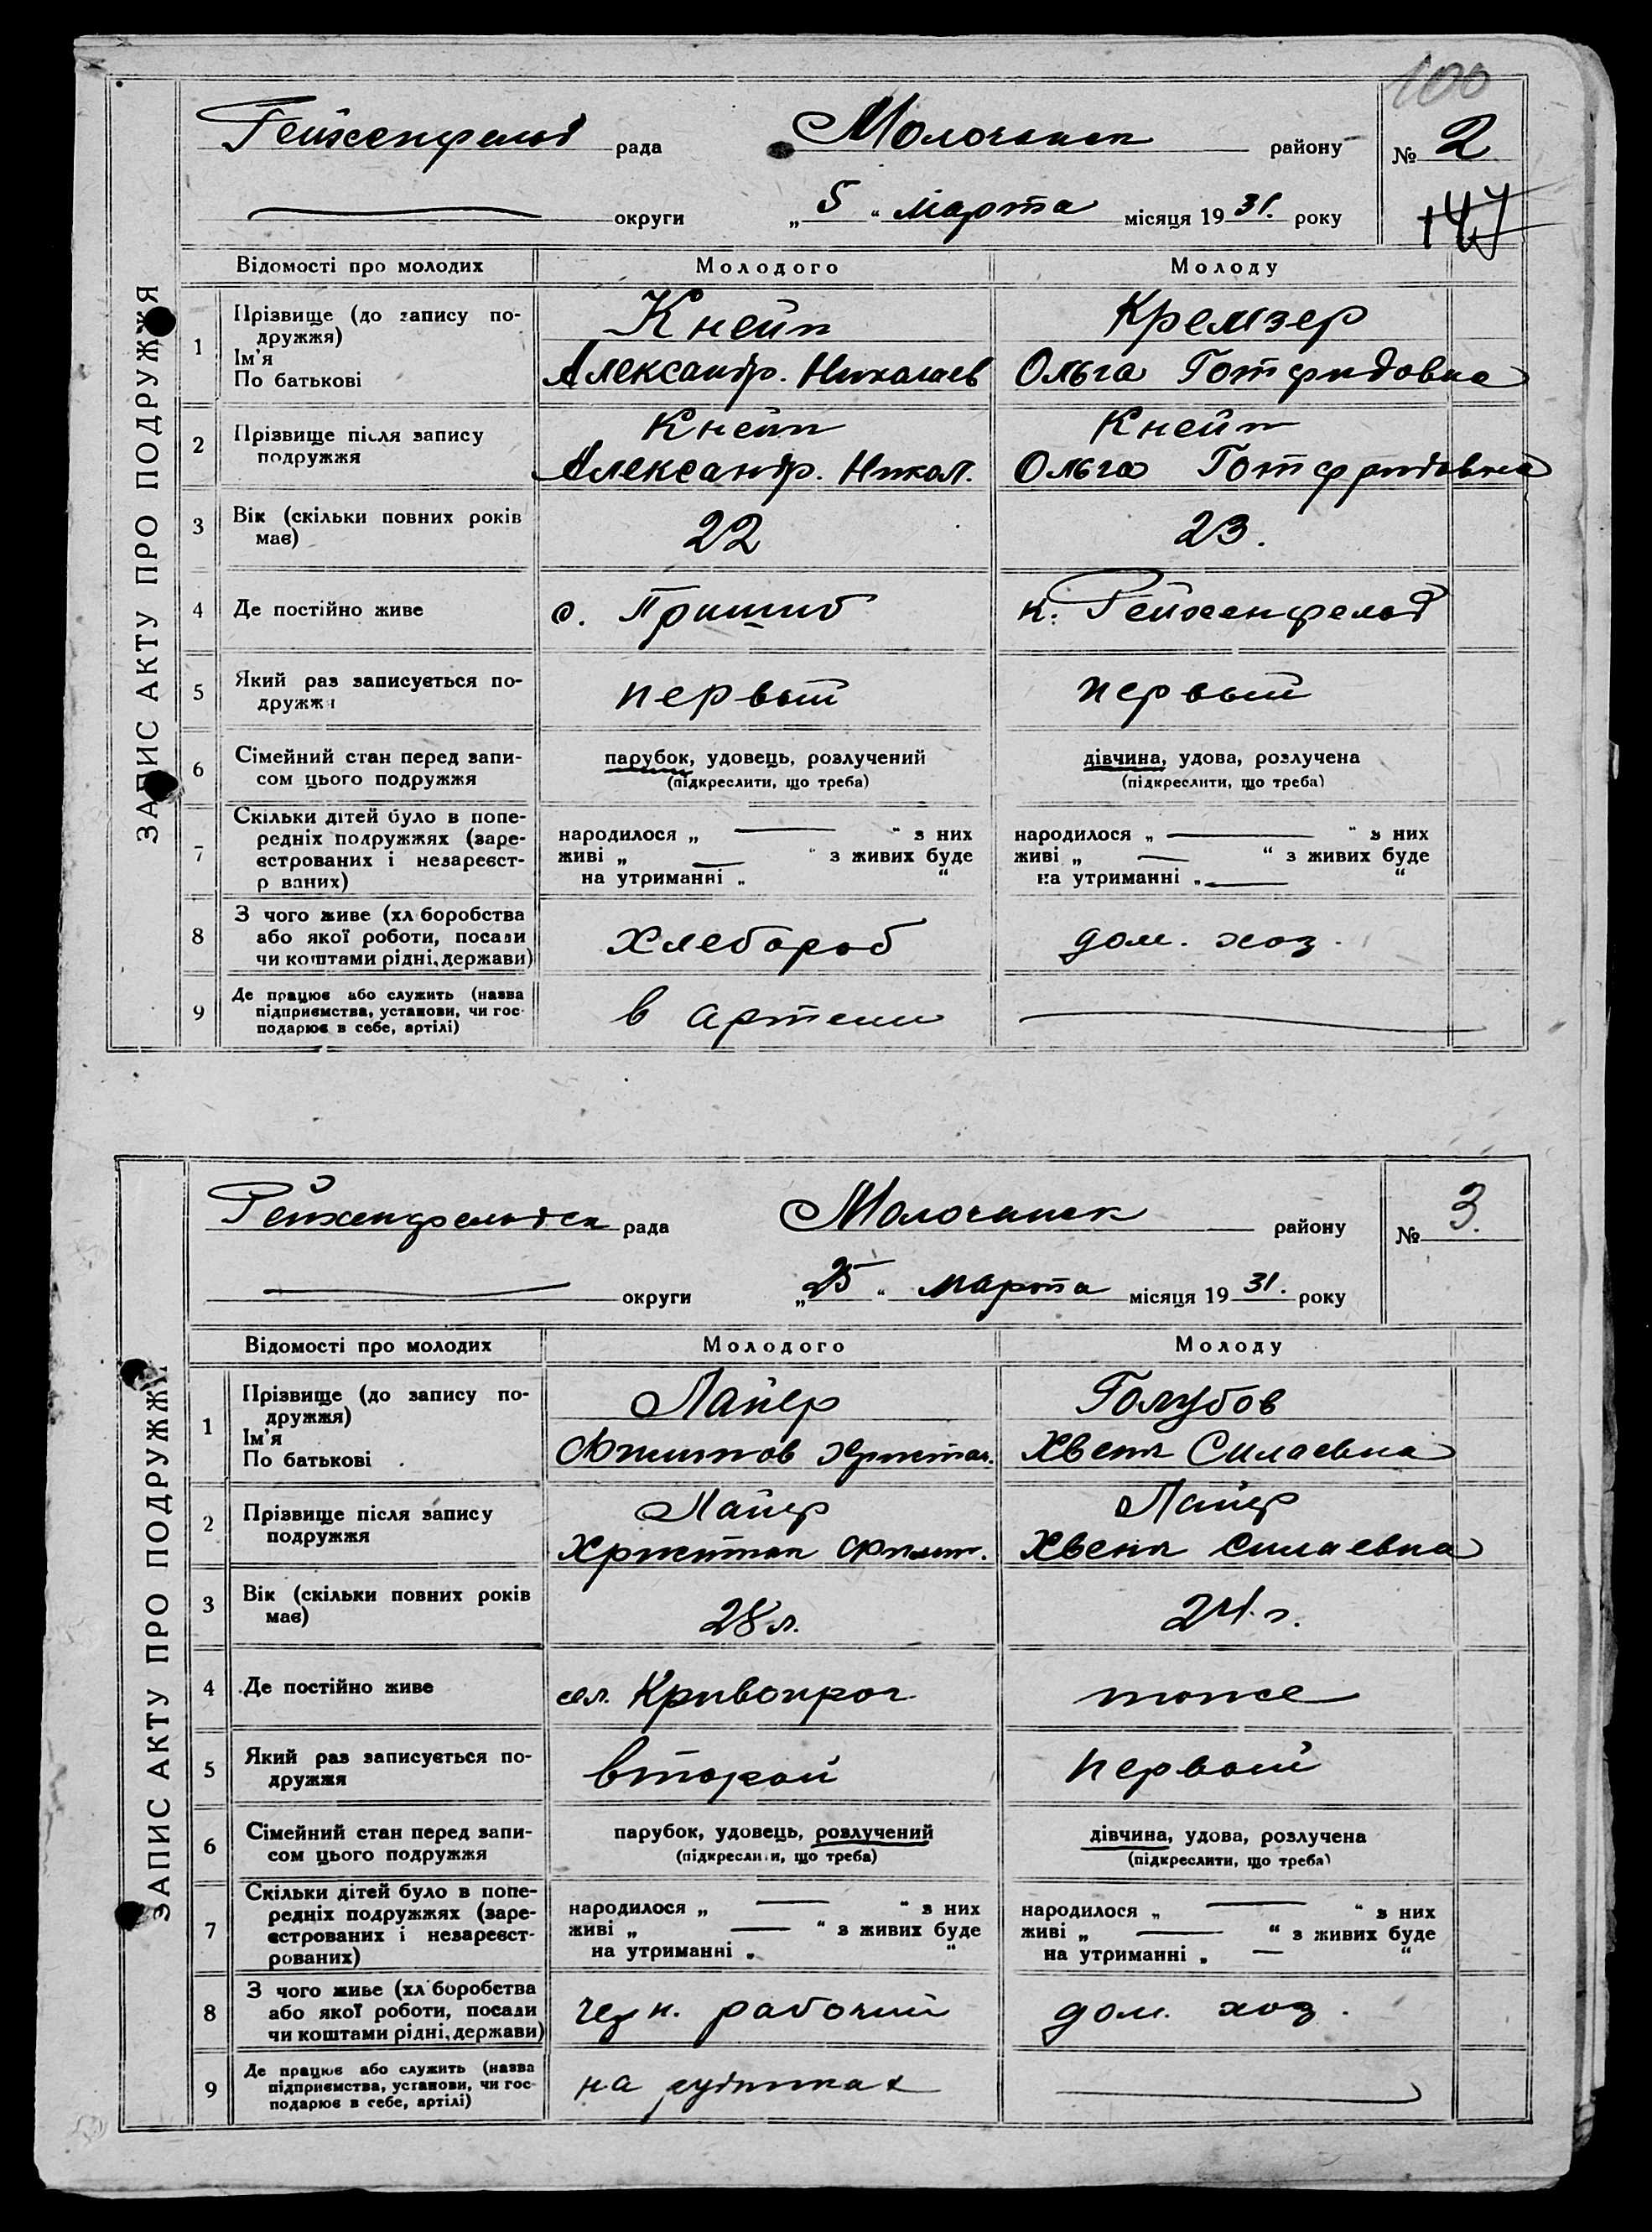 100
Рейхенфельд рада Молочанск району № 2
округи „ 5 “ марта місяця 19 31. року
147
ЗАПИС АКТУ ПРО ПОДРУЖЖЯ
Відомості про молодих Молодого Молоду
1 Прізвище (до запису по-
дружжя)
Ім'я
По батькові
Кнейп Кремзер
Александр. Николаев Ольга Готфридовна
2 Прізвище після запису
подружжя
Кнейп Кнейп
Александр. Никол. Ольга Готфридовна
3 Вік (скільки повних років
має)
22 23.
4 Де постійно живе с. Пришиб к. Рейхенфельд
5 Який раз записується по-
дружжя
первый первый
6 Сімейний стан перед запи-
сом цього подружжя
парубок, удовець, розлучений дівчина, удова, розлучена
(підкреслити, що треба) (підкреслити, що треба)
7 Скільки дітей було в попе-
редніх подружжях (заре-
єстрованих і незареєст-
р ваних)
народилося „ “ з них народилося „ “ з них
живі „ “ з живих буде живі „ “ з живих буде
на утриманні „ “ на утриманні „ “
8 З чого живе (хл боробства
або якої роботи, посади
чи коштами рідні, держави)
Хлебороб дом. хоз.
9 Де працює або служить (назва
підприємства, установи, чи гос-
подарює в себе, артілі)
в артели
Рейхенфельдск рада Молочанск району № 3.
округи „ 25 “ марта місяця 19 31. року
ЗАПИС АКТУ ПРО ПОДРУЖЖЯ
Відомості про молодих Молодого Молоду
1 Прізвище (до запису по-
дружжя)
Ім'я
По батькові
Лайер Голубов
Филипов Христиан. Хвеня Силаевна
2 Прізвище після запису
подружжя
Лайер Лайер
Христиан Филип. Хвеня Силаевна
3 Вік (скільки повних років
має)
28 л. 24 г.
4 Де постійно живе сел. Кривойрог тоже
5 Який раз записується по-
дружжя
второй первый
6 Сімейний стан перед запи-
сом цього подружжя
парубок, удовець, розлучений дівчина, удова, розлучена
(підкреслити, що треба) (підкреслити, що треба)
7 Скільки дітей було в попе-
редніх подружжях (заре-
єстрованих і незареєст-
рованих)
народилося „ “ з них народилося „ “ з них
живі „ “ з живих буде живі „ “ з живих буде
на утриманні „ “ на утриманні „ “
8 З чого живе (хл боробства
або якої роботи, посади
чи коштами рідні, держави)
черн. рабочий дом. хоз.
9 Де працює або служить (назва
підприємства, установи, чи гос-
подарює в себе, артілі)
на рудниках